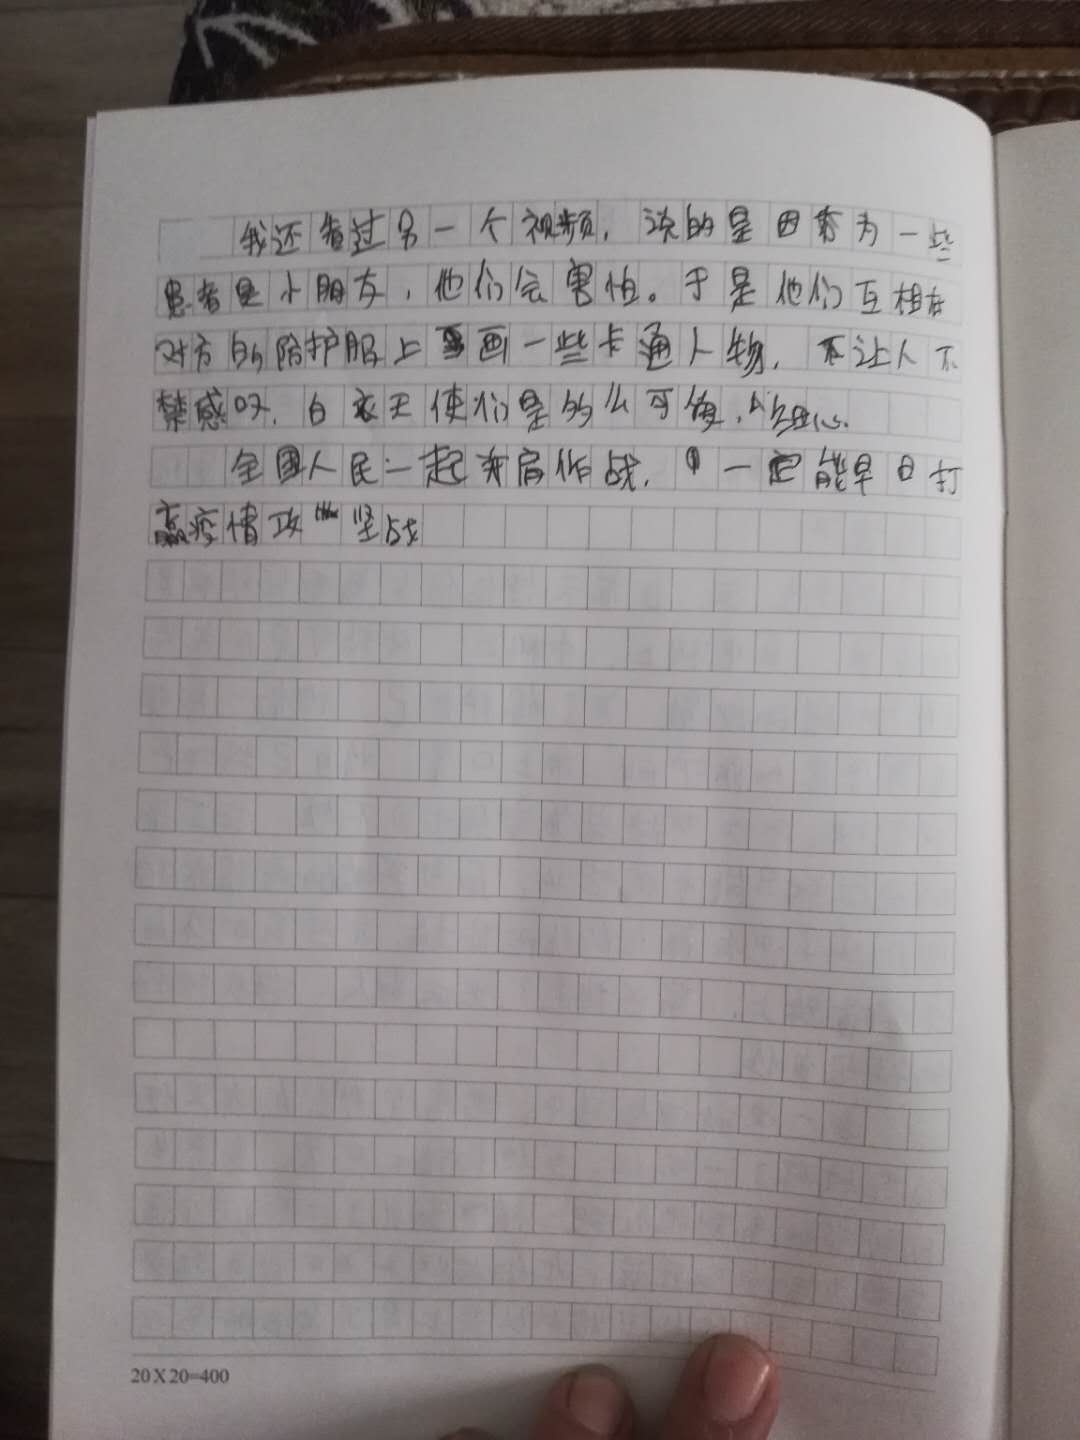 我还看过另一个视频，说的是因为一些
患者是小朋友，他们会害怕。于是他们互相在
对方的防护服上画一些卡通人物，不让人不
禁感叹，白衣天使们是的么可爱，细心.
全国人民一起并肩作战，一定能早日打
赢疫情攻坚战
20X20=400